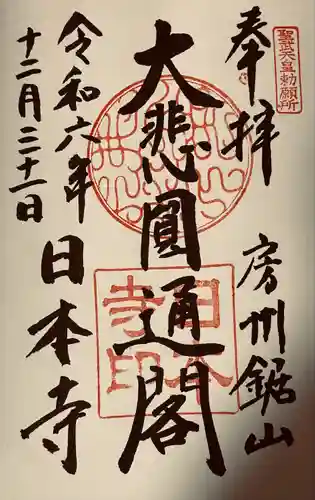 聖武天皇勅願所
奉拝
房州鋸山
大悲圓通閣
日本寺印
令和六年
十二月三十一日
日本寺